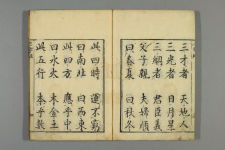 三才者　天地人
三光者　日月星
三綱者　君臣義
父子親　夫婦順
曰春夏　曰秋冬
此四時　運不窮
曰南北　曰西東
此四方　應乎中
曰水火　木金土
此五行　本乎數